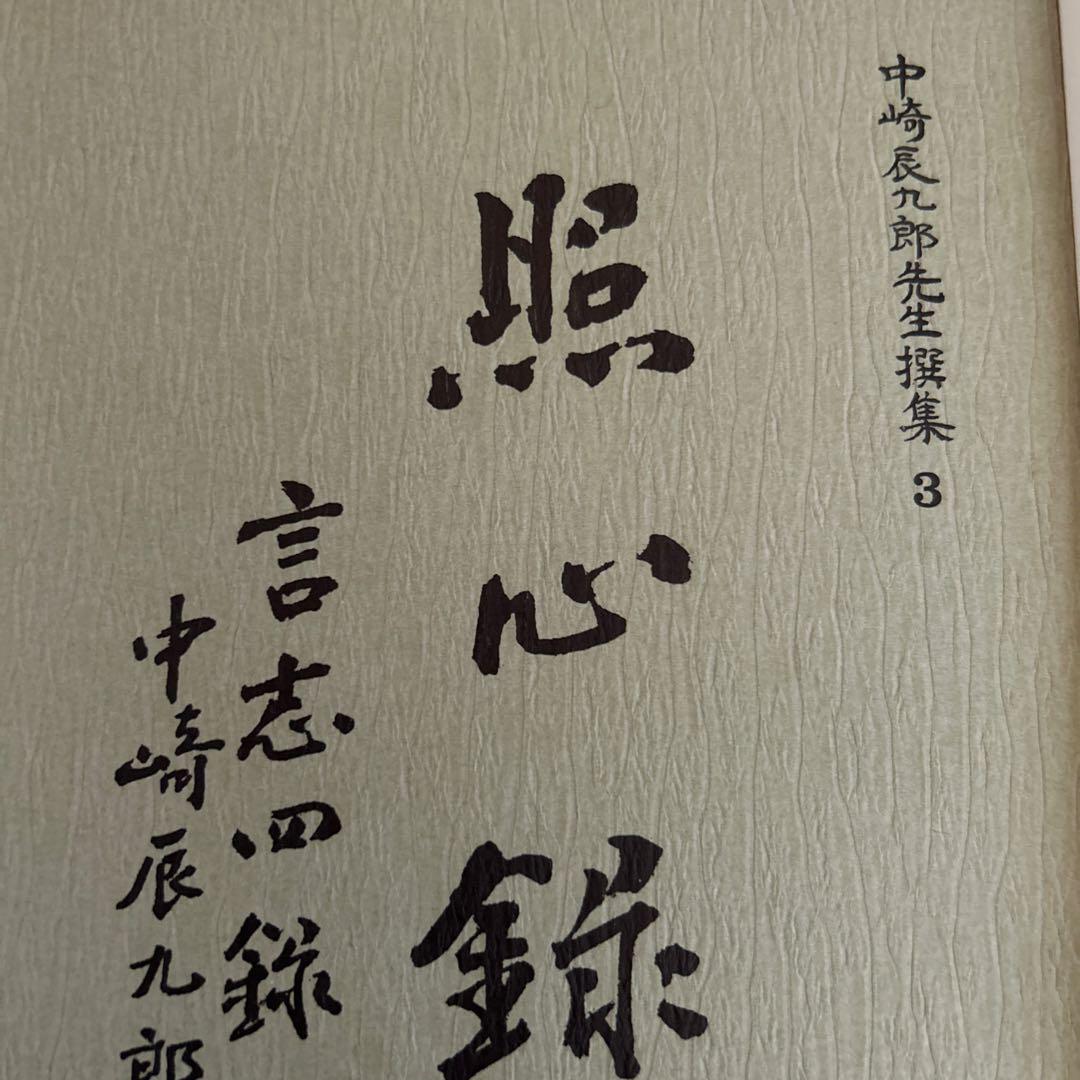 中崎辰九郎先生撰集 3
照心録
言志四録
中崎辰九郎